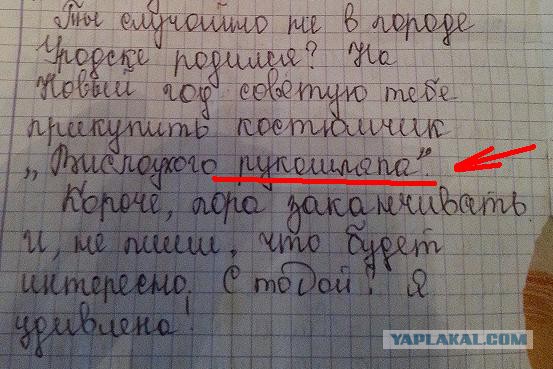 Ты случайно не в городе
Уродске родился? На
Новый год советую тебе
прикупить костюмчик
„Вислоухого рукошлёпа“.
Короче, пора заканчивать.
И, не пиши, что будет
интересно. С тобой! Я
удивлена!
YAPLAKAL.COM